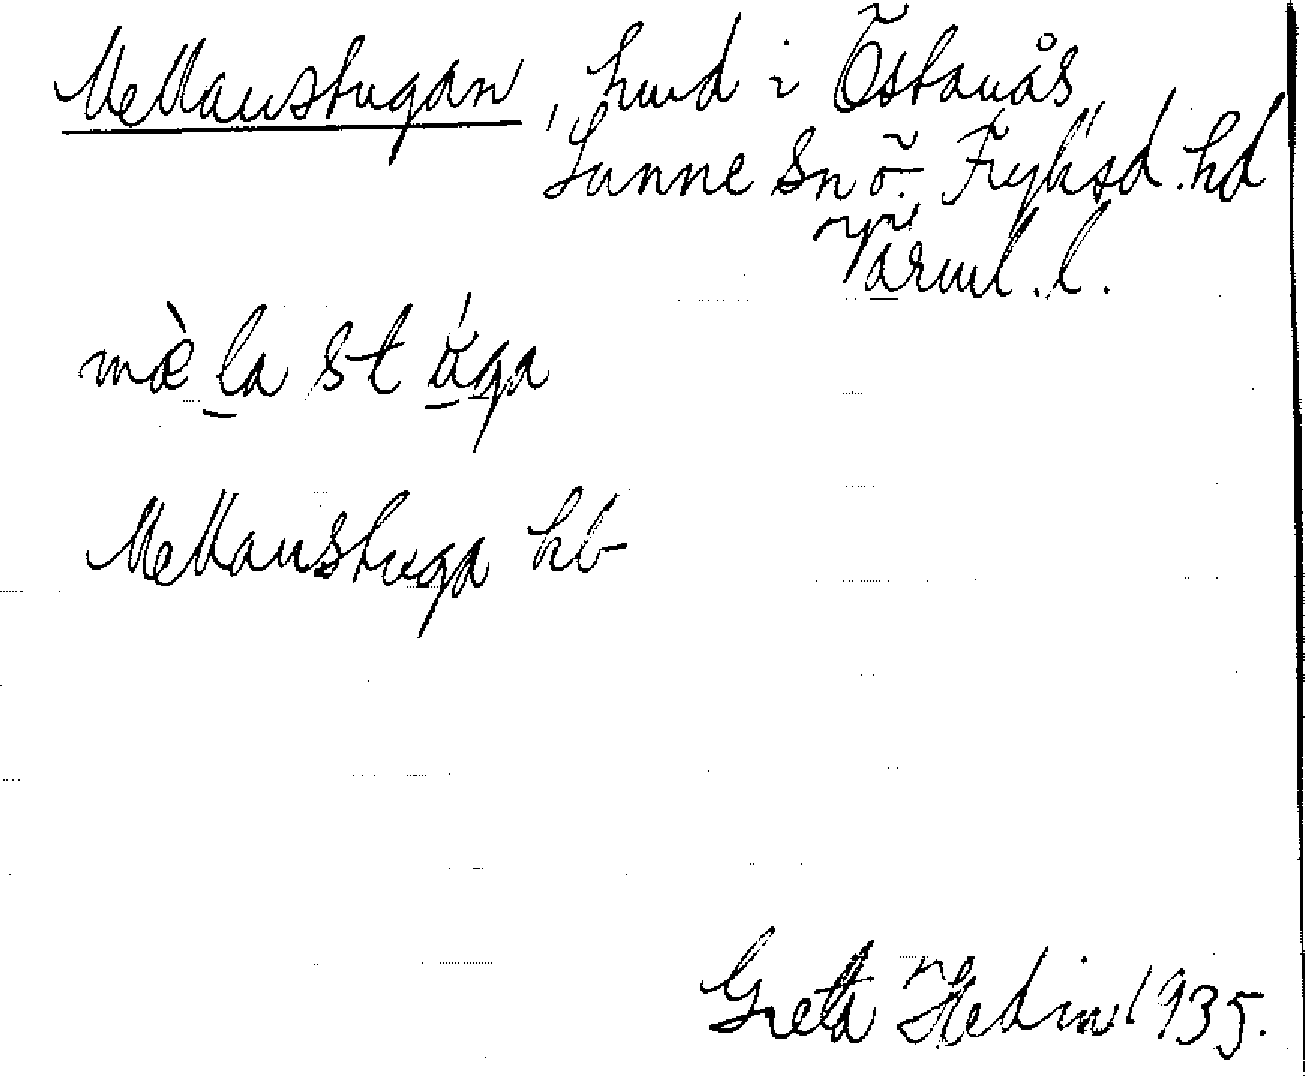 Mellanstugan, hmd i Östanås
Sunne sn ö. Fryksd. hd
Värml. l.
mæ̀la stúga
Mellanstuga hb
Greta Hedin 1935.